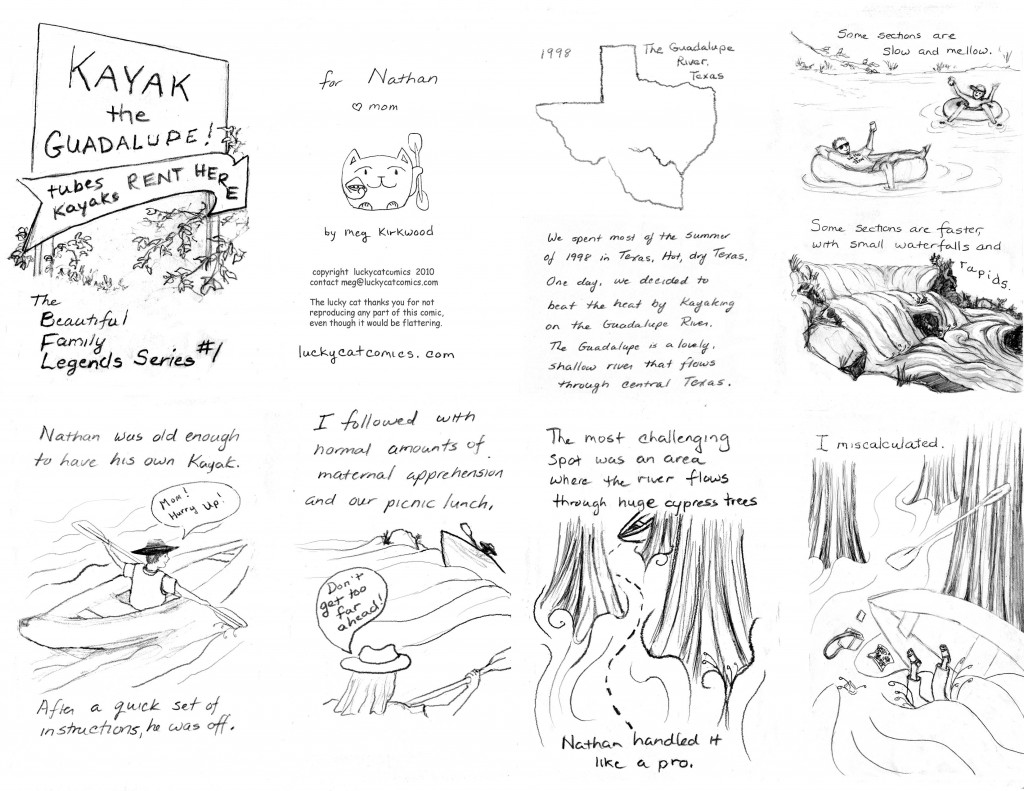 KAYAK
the
GUADALUPE!
tubes
Kayaks
RENT HERE
The
Beautiful
Family
Legends Series #1
for Nathan
♡ mom
by meg Kirkwood
copyright luckycatcomics 2010
contact meg@luckycatcomics.com
The lucky cat thanks you for not
reproducing any part of this comic,
even though it would be flattering.
luckycatcomics.com
1998
The Guadalupe
River,
Texas
We spent most of the summer
of 1998 in Texas. Hot, dry Texas.
One day, we decided to
beat the heat by Kayaking
on the Guadalupe River.
The Guadalupe is a lovely,
shallow river that flows
through central Texas.
Some sections are
slow and mellow.
Some sections are faster,
with small waterfalls and
rapids.
Nathan was old enough
to have his own Kayak.
Mom!
Hurry Up!
After a quick set of
instructions, he was off.
I followed with
normal amounts of
maternal apprehension
and our picnic lunch.
Don't
get too
far
ahead!
The most challenging
spot was an area
where the river flows
through huge cypress trees
Nathan handled it
like a pro.
I miscalculated.